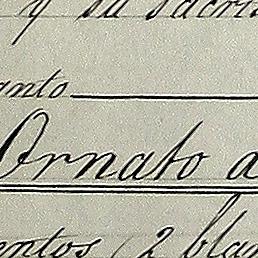 y su sacris
anto
Ornato a
entos (2 blan